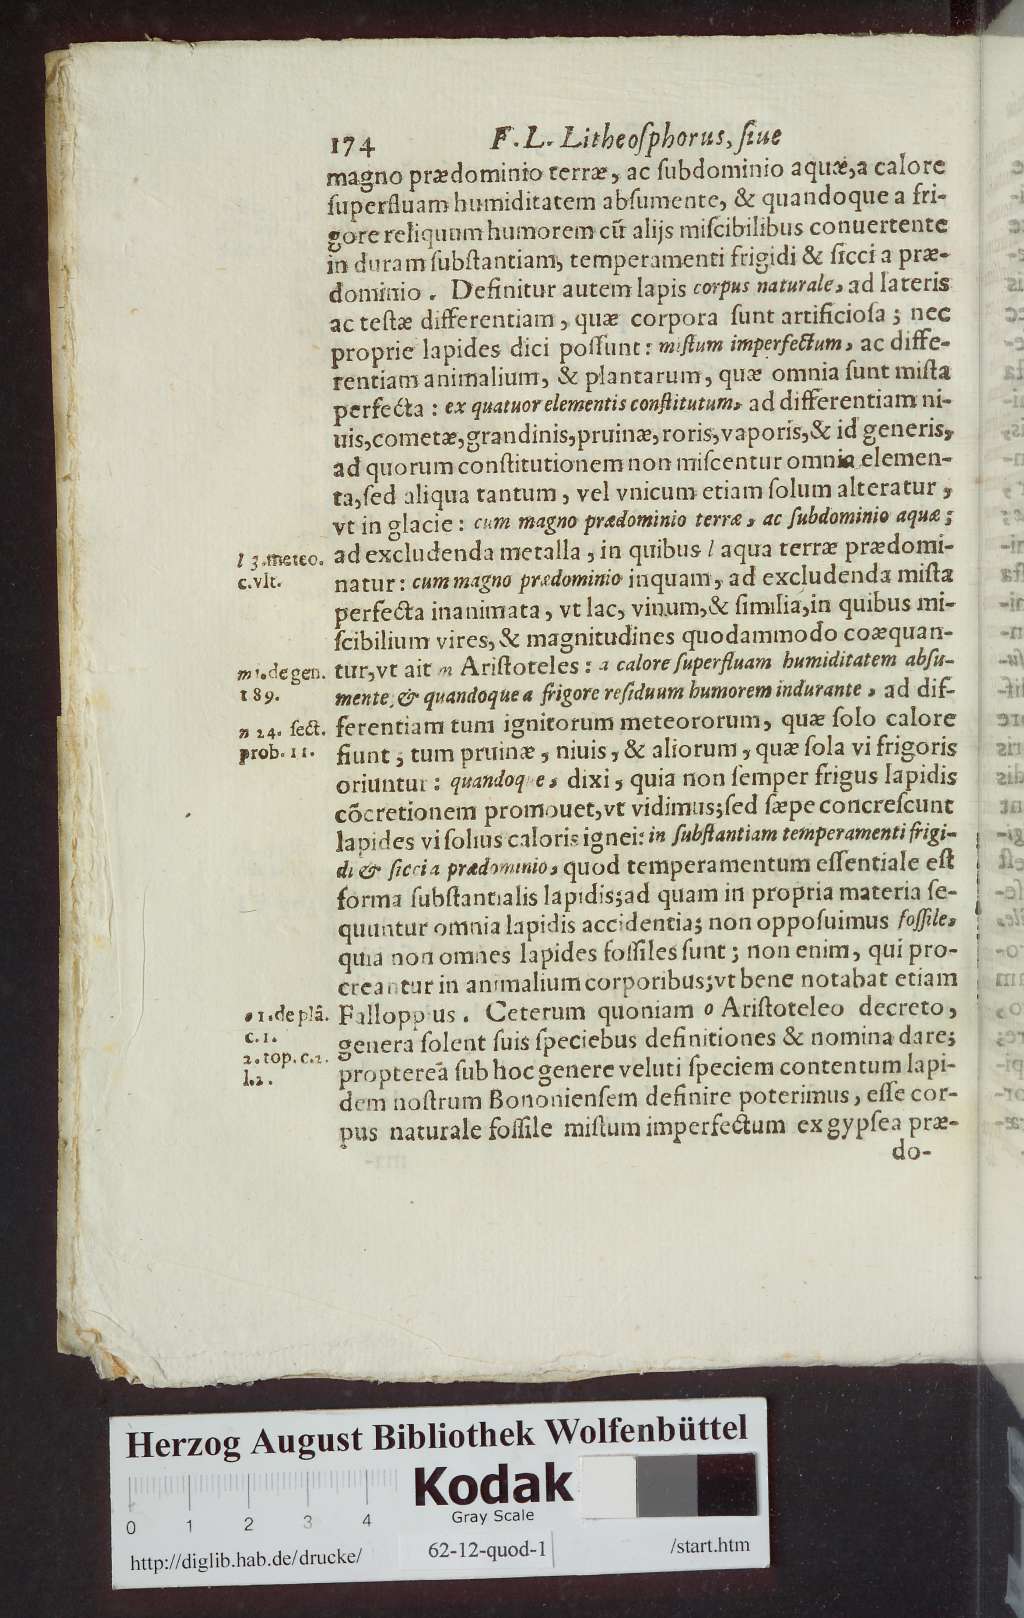 174 F. L. Litheoſphorus, ſiue
magno prædominio terræ, ac ſubdominio aquæ, a calore
ſuperfluam humiditatem abſumente, & quandoque a fri-
gore reliquum humorem cū alijs miſcibilibus conuertente
in duram ſubſtantiam, temperamenti frigidi & ſicci a præ-
dominio. Definitur autem lapis corpus naturale, ad lateris
ac teſtæ differentiam, quæ corpora ſunt artificioſa; nec
proprie lapides dici poſſunt: miſtum imperfectum, ac diffe-
rentiam animalium, & plantarum, quæ omnia ſunt miſta
perfecta: ex quatuor elementis conſtitutum, ad differentiam ni-
uis, cometæ, grandinis, pruinæ, roris, vaporis, & id generis,
ad quorum conſtitutionem non miſcentur omnia elemen-
ta, ſed aliqua tantum, vel vnicum etiam ſolum alteratur,
vt in glacie: cum magno prædominio terræ, ac ſubdominio aquæ;
l 3. meteo. ad excludenda metalla, in quibus l aqua terræ prædomi-
c. vlt. natur: cum magno prædominio inquam, ad excludenda miſta
perfecta inanimata, vt lac, vinum, & ſimilia, in quibus mi-
ſcibilium vires, & magnitudines quodammodo coæquan-
m 1. de gen. tur, vt ait m Ariſtoteles: a calore ſuperfluam humiditatem abſu-
189. mente, & quandoque a frigore reſiduum humorem indurante, ad dif-
n 24. ſect. ferentiam tum ignitorum meteororum, quæ ſolo calore
prob. 11. fiunt; tum pruinæ, niuis, & aliorum, quæ ſola vi frigoris
oriuntur: quandoque, dixi, quia non ſemper frigus lapidis
cōcretionem promouet, vt vidimus; ſed ſæpe concreſcunt
lapides vi ſolius caloris ignei: in ſubſtantiam temperamenti frigi-
di & ſicci a prædominio, quod temperamentum eſſentiale eſt
forma ſubſtantialis lapidis; ad quam in propria materia ſe-
quuntur omnia lapidis accidentia; non oppoſuimus foſſile,
quia non omnes lapides foſſiles ſunt; non enim, qui pro-
creantur in animalium corporibus; vt bene notabat etiam
o 1. de plā. Falloppius. Ceterum quoniam o Ariſtoteleo decreto,
c. 1. genera ſolent ſuis ſpeciebus definitiones & nomina dare;
2. top. c. 2. propterea ſub hoc genere veluti ſpeciem contentum lapi-
l. 2. dem noſtrum Bononienſem definire poterimus, eſſe cor-
pus naturale foſſile miſtum imperfectum ex gypſea præ-
do-
Herzog August Bibliothek Wolfenbüttel
Kodak
Gray Scale
0 1 2 3 4
http://diglib.hab.de/drucke/ 62-12-quod-1 /start.htm